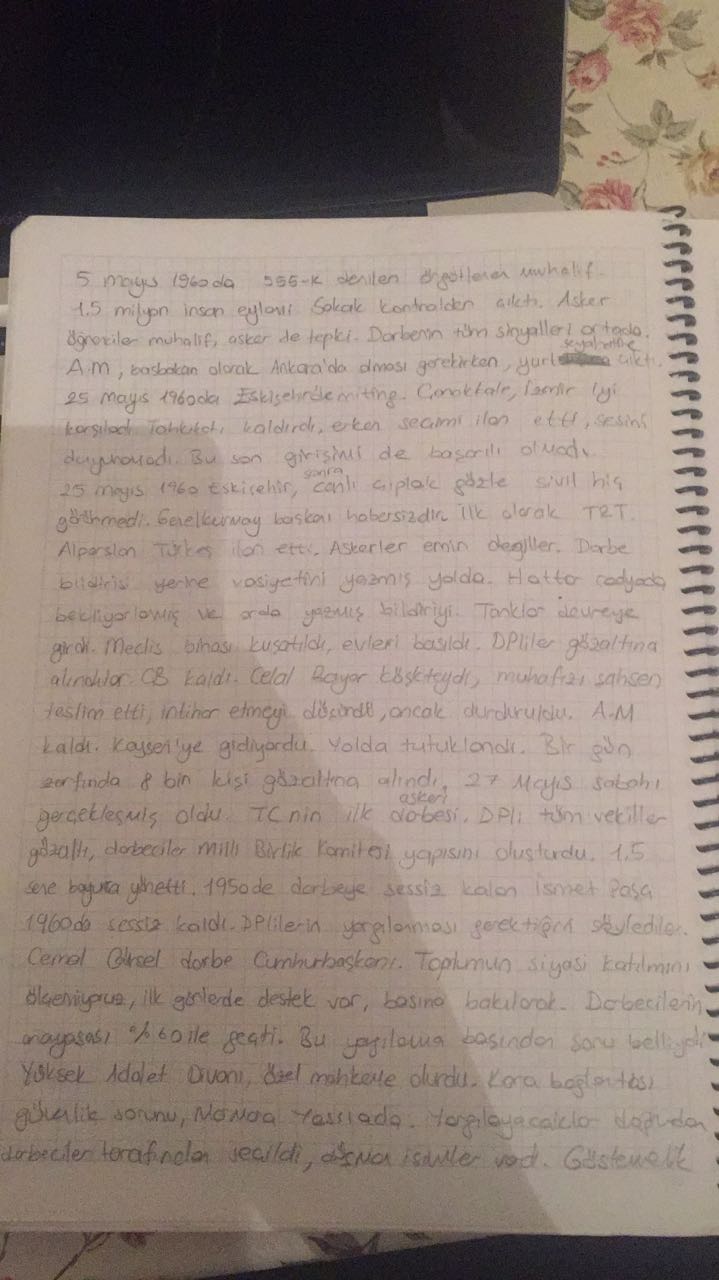 5 mayıs 1960da 555-K denilen örgütlenen muhalif.
1.5 milyon insan eylemi. Sokak kontrolden çıktı. Asker
öğrenciler muhalif, asker de tepki. Darbenin tüm sinyalleri ortada.
A.M, başbakan olarak Ankara'da olması gerekirken, yurt seyahatine çıktı.
25 Mayıs 1960da Eskişehirde miting. Çanakkale, İzmir iyi
karşıladı. Tahkikatı kaldırdı, erken seçimi ilan etti, sesini
duyuramadı. Bu son girişimi de başarılı olmadı.
25 mayıs 1960 Eskişehir, sonra canlı çıplak gözle sivil hiç
görünmedi. Genelkurmay başkanı habersizdir. İlk olarak TRT.
Alparslan Türkeş ilan etti. Askerler emin değiller. Darbe
bildirisi yerine vasiyetini yazmış yolda. Hatta radyoda
bekliyorlarmış ve orda yazmış bildiriyi. Tanklar devreye
girdi. Meclis binası kuşatıldı, evleri basıldı. DPliler gözaltına
alındılar. CB kaldı. Celal Bayar köşkteydi, muhafızı şahsen
teslim etti, intihar etmeyi düşündü, ancak durduruldu. A.M
kaldı. Kayseri'ye gidiyordu. Yolda tutuklandı. Bir gün
zarfında 8 bin kişi gözaltına alındı. 27 Mayıs sabahı
gerçekleşmiş oldu. TCnin ilk askeri darbesi. DPli tüm vekiller
gözaltı, darbeciler Milli Birlik Komitesi yapısını oluşturdu. 1,5
sene boyunca yönetti. 1950de darbeye sessiz kalan İsmet Paşa
1960da sessiz kaldı. DPlilerin yargılanması gerektiğini söylediler.
Cemal Gürsel darbe Cumhurbaşkanı. Toplumun siyasi katılımını
ölçemiyoruz, ilk günlerde destek var, basına bakılarak. Darbecilerin
anayasası %60 ile geçti. Bu yargılama başından sonu belliydi
Yüksek Adalet Divanı, özel mahkeme olurdu. Kara bağlantısı
güvenlik sorunu, Yassıada. Yargılayacaklar doğrudan
darbeciler tarafından seçildi, isimler vardı. Göstermelik